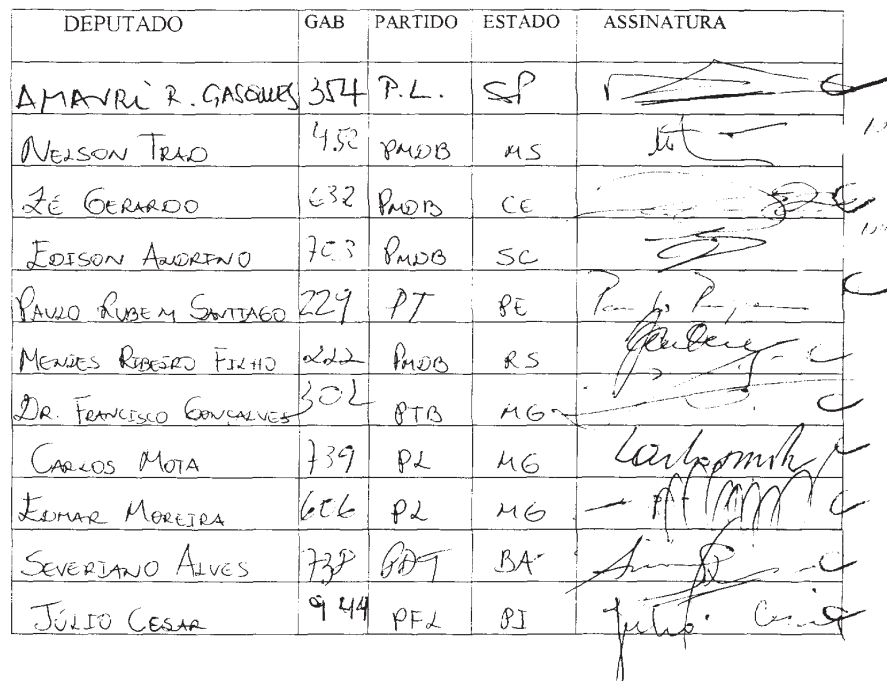 DEPUTADO GAB PARTIDO ESTADO ASSINATURA
AMAURI R. GASQUES 354 P.L. SP
NELSON TRAD 452 PMDB MS
ZÉ GERARDO 632 PMDB CE
EDISON ANDRINO 703 PMDB SC
PAULO RUBEM SANTIAGO 229 PT PE
MENDES RIBEIRO FILHO 222 PMDB RS
DR. FRANCISCO GONÇALVES 302 PTB MG
CARLOS MOTA 739 PL MG
EDMAR MOREIRA 606 PL MG
SEVERIANO ALVES 738 PDT BA
JÚLIO CESAR 944 PFL PI Julio Cesar